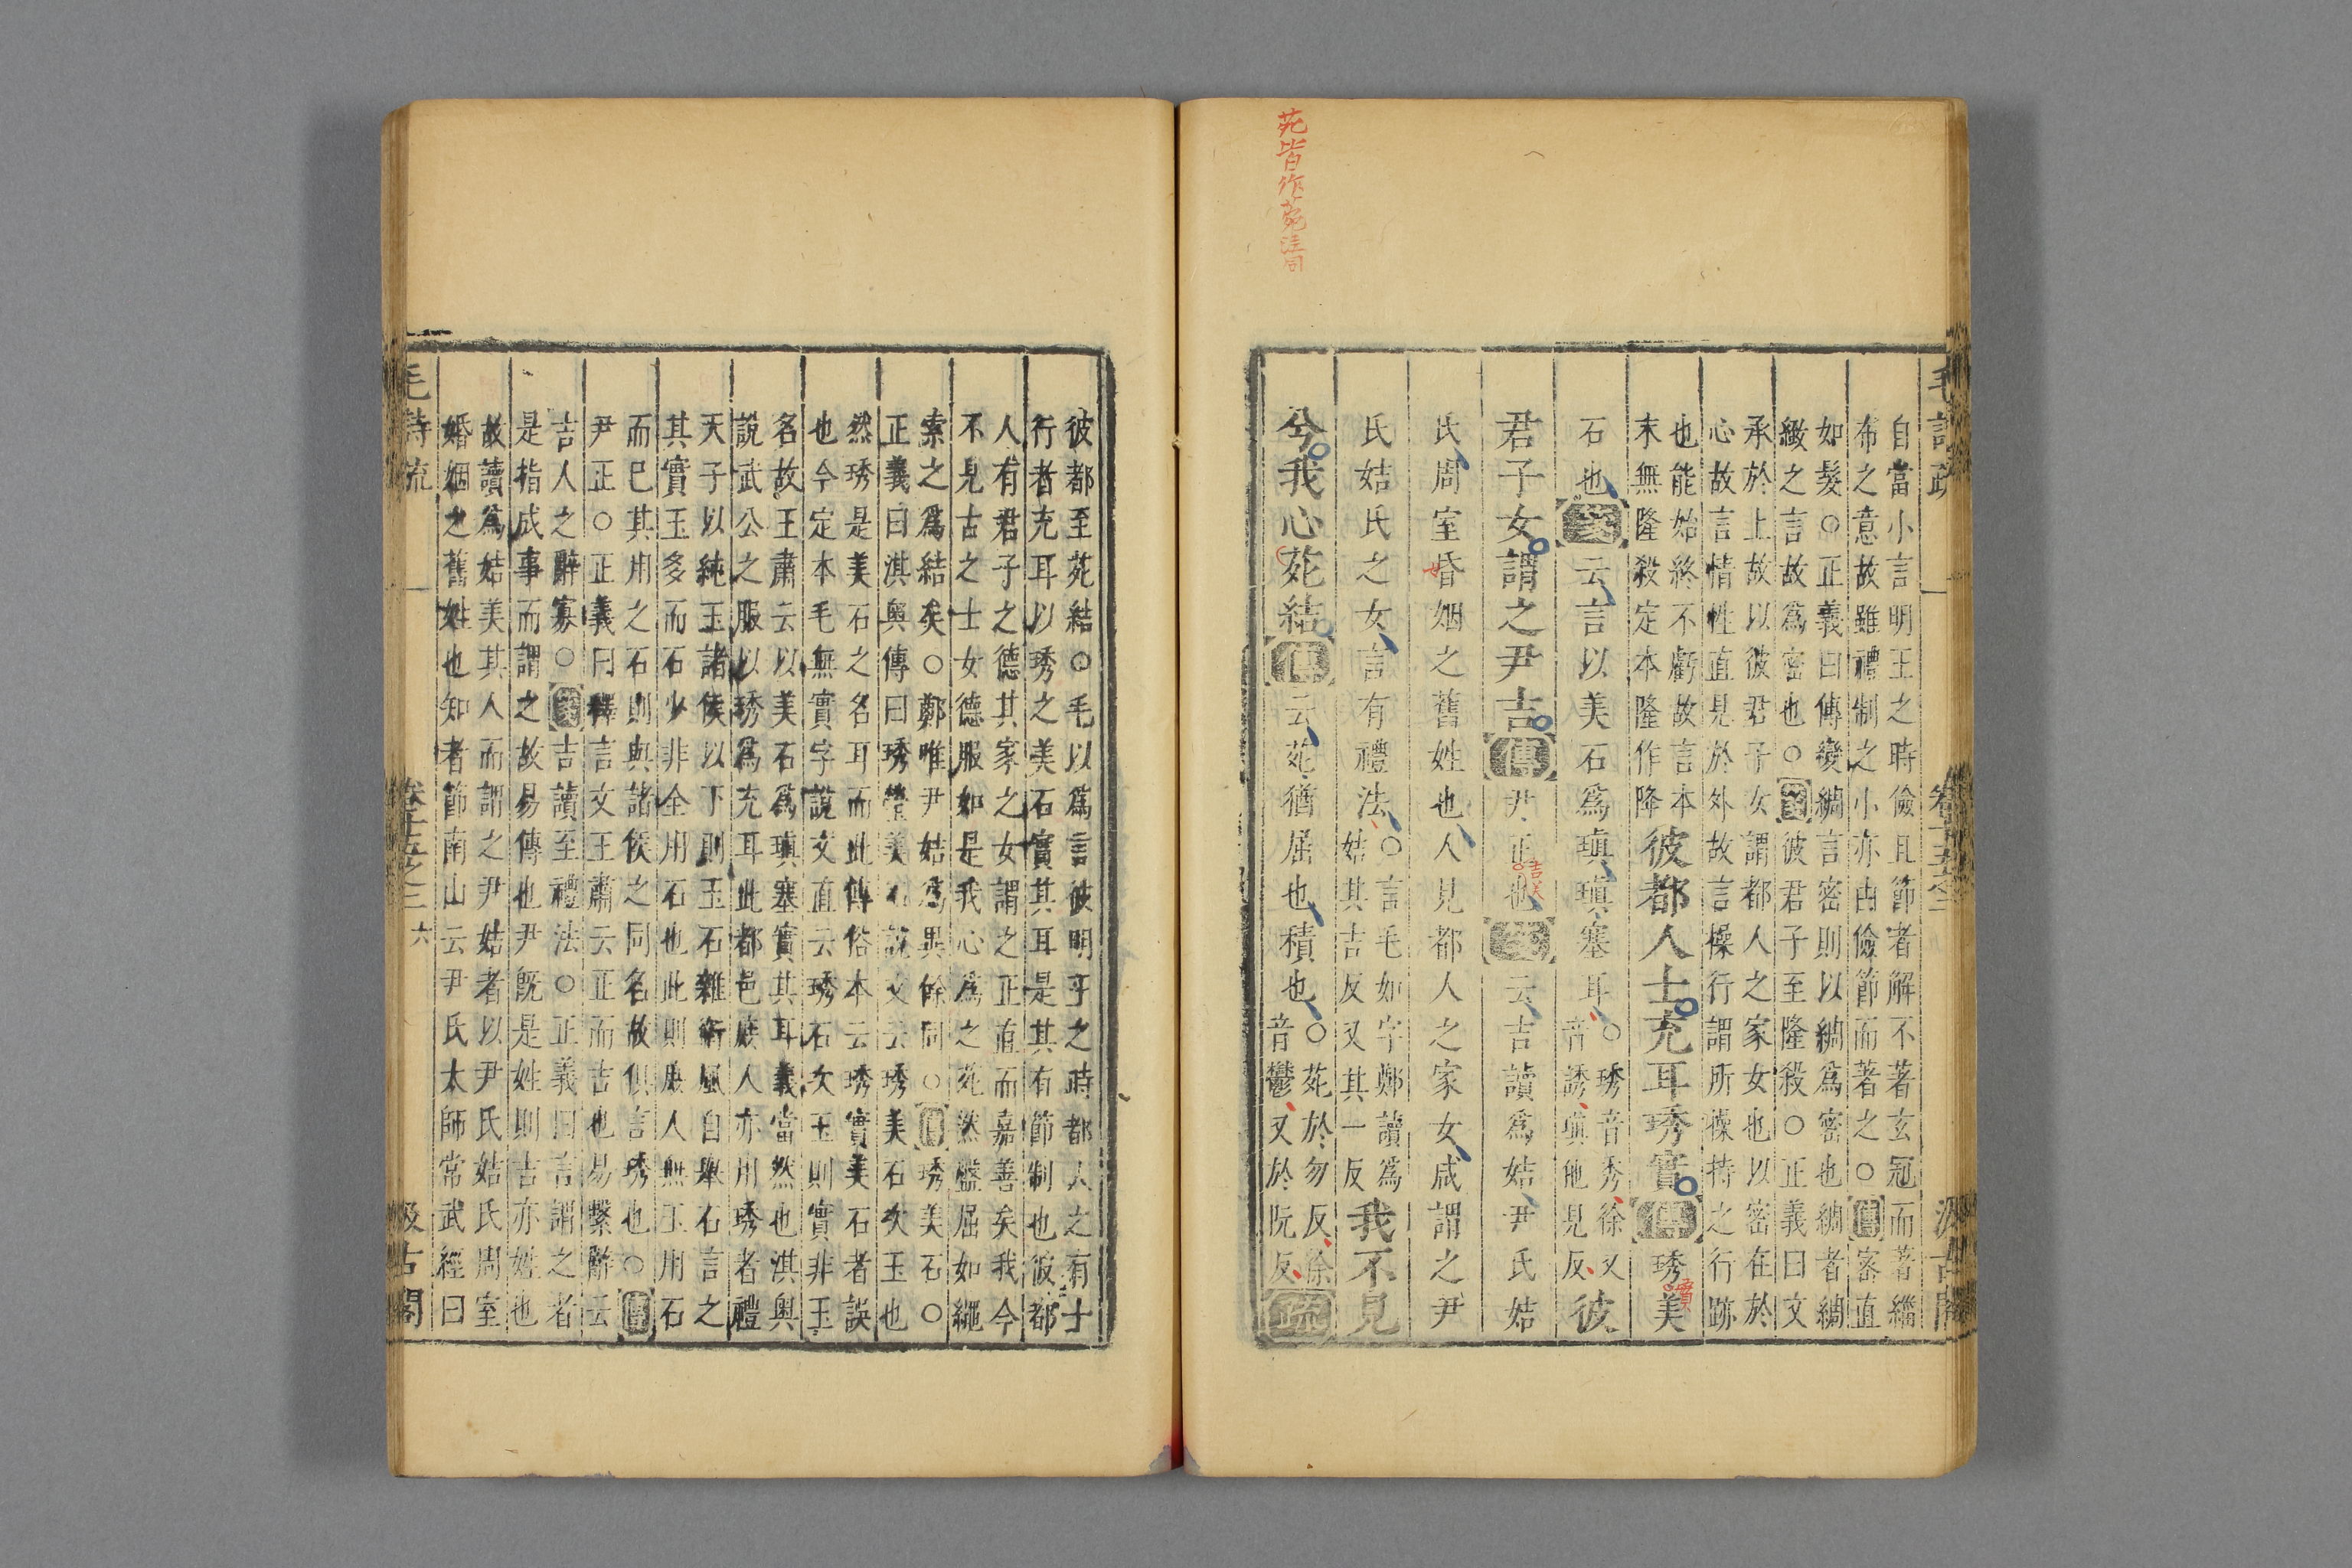 苑皆作菀注同
毛詩疏
自當小言明王之時儉且節者解不著玄冠而著緇
布之意故雖禮制之小亦由儉節而著之○傳密直
如髮○正義曰傳變綢言密則以綢為密也綢者綢
緻之言故為密也○箋彼君子至隆殺○正義曰文
承於上故以彼君子女謂都人之家女也以密在於
心故言情性直見於外故言操行謂所操持之行跡
也能始終不虧故言本
末無隆殺定本隆作降
彼都人士充耳琇實傳琇美
石也箋云言以美石為瑱瑱塞耳
○琇音秀徐又
音誘瑱他見反
彼
君子女謂之尹吉傳尹正也箋云吉讀為姞尹氏姞
氏周室昏姻之舊姓也人見都人之家女咸謂之尹
氏姞氏之女言有禮法
○吉毛如字鄭讀為
姞其吉反又其一反
我不見
兮我心苑結傳云苑猶屈也積也
○苑於勿反徐
音鬱又於阮反
疏
彼都至苑結○毛以為言彼明王之時都人之有士
行者充耳以琇之美石實其耳是其有節制也彼都
人有君子之德其家之女謂之正直而嘉善矣我今
不見古之士女德服如是我心為之苑然盤屈如繩
索之為結矣○鄭唯尹姞為異餘同○傳琇美石○
正義曰淇奧傳曰琇瑩美石說文云琇美石次玉也
然琇是美石之名耳而此傳俗本云琇實美石者誤
也今定本毛無實字說文直云琇石次玉則實非玉
名故王肅云以美石為瑱塞實其耳義當然也淇奧
說武公之服以琇為充耳此都邑庶人亦用琇者禮
天子以純玉諸侯以下則玉石雜衛風自舉石言之
其實玉多而石少非全用石也此則庶人無玉用石
而已其用之石則與諸侯之同名故俱言琇也○傳
尹正○正義曰釋言文王肅云正而吉也易繫辭云
吉人之辭寡○箋吉讀至禮法○正義曰言謂之者
是指成事而謂之故易傳也尹既是姓則吉亦姓也
故讀為姞美其人而謂之尹姞者以尹氏姞氏周室
婚姻之舊姓也知者節南山云尹氏太師常武經曰
毛詩疏
卷十五之二
六
汲古閣